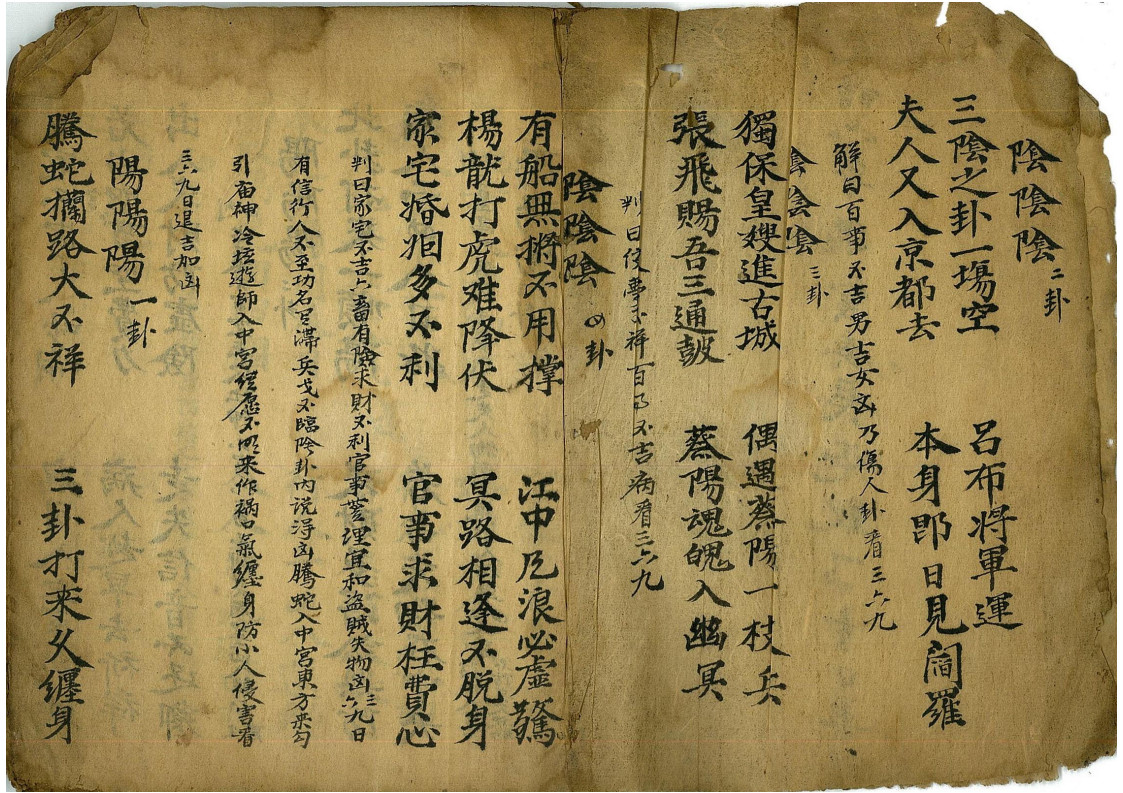 陰陰陰 二卦
三陰之卦一場空 呂布将軍運
夫人又入京都去 本身即日見閻羅
解曰百事不吉男吉女凶乃傷人卦看三六九
陰陰陰 三卦
獨保皇嫂進古城 偶遇蔡陽一枝兵
張飛賜吾三通皷 蔡陽魂魄入幽冥
判曰夜夢不祥百事不吉病看三六九
陰陰陰 四卦
有船無槳不用撑 江中凡浪必虚驚
楊龍打虎难降伏 冥路相逢不脱身
家宅婚姻多不利 官事求財枉費心
判曰家宅不吉六畜有險求財不利官事理宜和盗賊失物凶三六九日
有信行人不至功名又滯兵戈不臨陰卦内说得凶騰蛇入中宮東方来勾
引庙神冷坛遊師入中宮愿不明来作祸口氣纏身防小人侵害看
三六九日退吉加凶
陽陽陽 一卦
騰蛇攔路大不祥 三卦打来久纏身